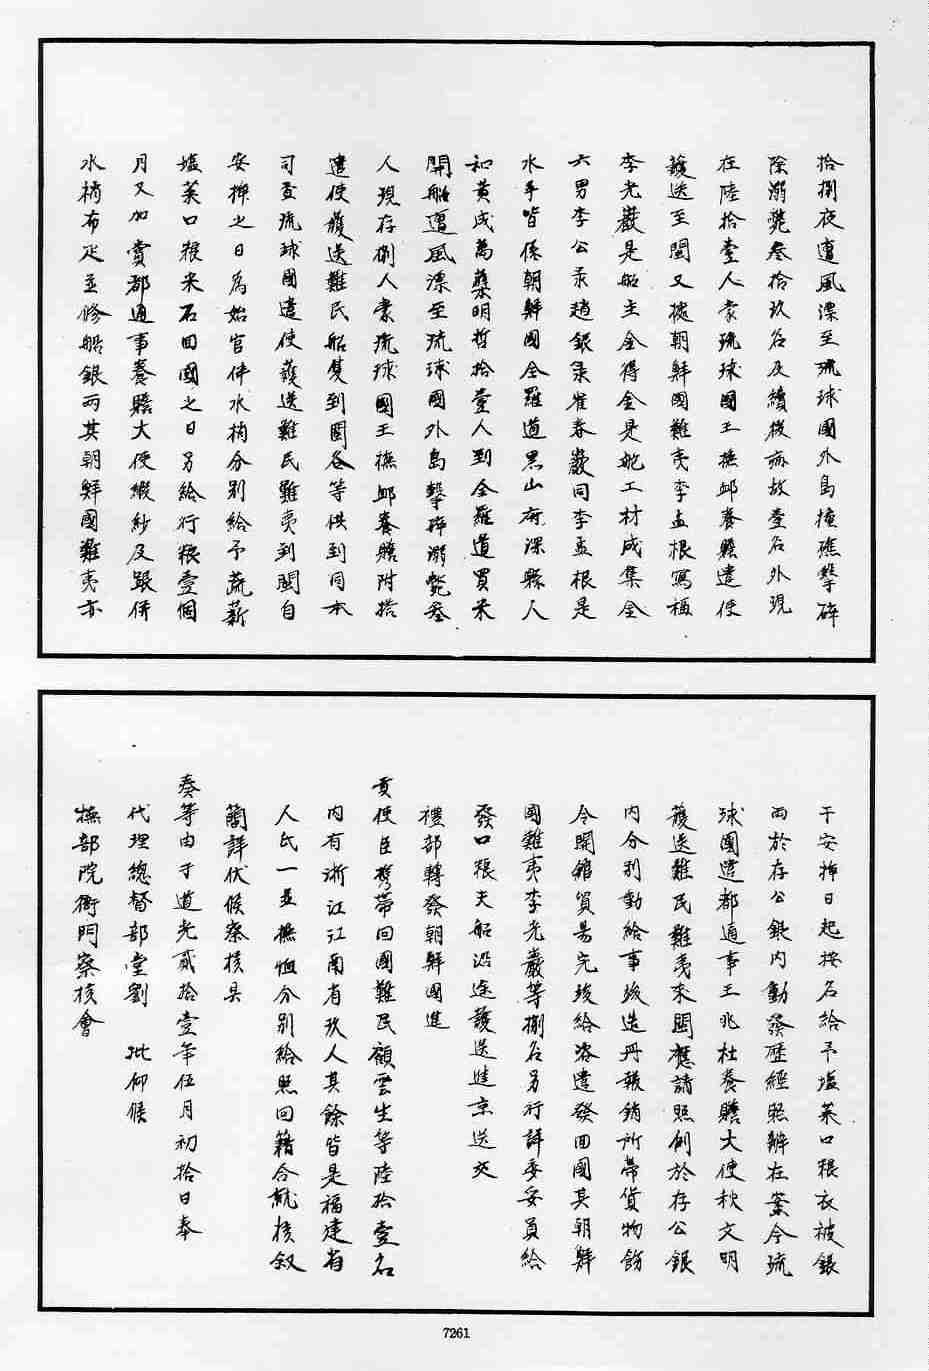 拾捌夜遭風漂至琉球國外島撞礁擊碎
除溺斃叁拾玖名及續後病故壹名外現
在陸拾壹人蒙琉球國王撫卹養贍遣使
護送至閩又據朝鮮國難夷李孟根寫稱
李光巖是船主金得金是舵工材成集全
六男李公禾趙銀集崔春巖同李孟根是
水手皆係朝鮮國全羅道黑山府深縣人
和黃成萬蘖明哲拾壹人到全羅道買米
開船遭風漂至琉球國外島擊碎溺斃叁
人現存捌人蒙琉球國王撫卹養贍附搭
遣使護送難民船隻到閩各等供到司本
司查琉球國遣使護送難民難夷到閩自
安揷之日為始官伴水梢分別給予蔬薪
塩菜口粮米石回國之日另給行粮壹個
月又加賞都通事養贍大使緞紗及跟伴
水梢布疋並修船銀兩其朝鮮國難夷亦
于安揷日起按名給予塩菜口粮衣被銀
兩於存公銀內動發歷經照辦在案今琉
球國遣都通事王兆杜養贍大使秋文明
護送難民難夷來閩應請照例於存公銀
內分別動給事竣造冊報銷所帶貨物飭
令開舘貿易完竣給咨遣發回國其朝鮮
國難夷李光巖等捌名另行詳委妥員給
發口粮夫船沿途護送進京送交
禮部轉發朝鮮國進
貢使臣攜帶回國難民顧雲生等陸拾壹名
內有浙江江南省玖人其餘皆是福建省
人氏一並撫恤分別給照回籍合就核叙
簡詳伏候察核具
奏等由于道光貳拾壹年伍月初拾日奉
代理總督部堂劉　批仰候
撫部院衙門察核會
7261